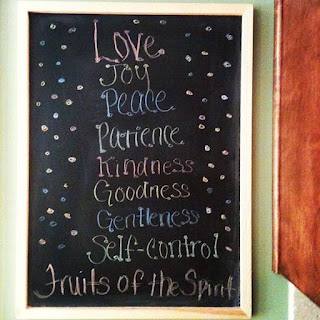 Love
Joy
Peace
Patience
Kindness
Goodness
Gentleness
Self-control
Fruits of the Spirit